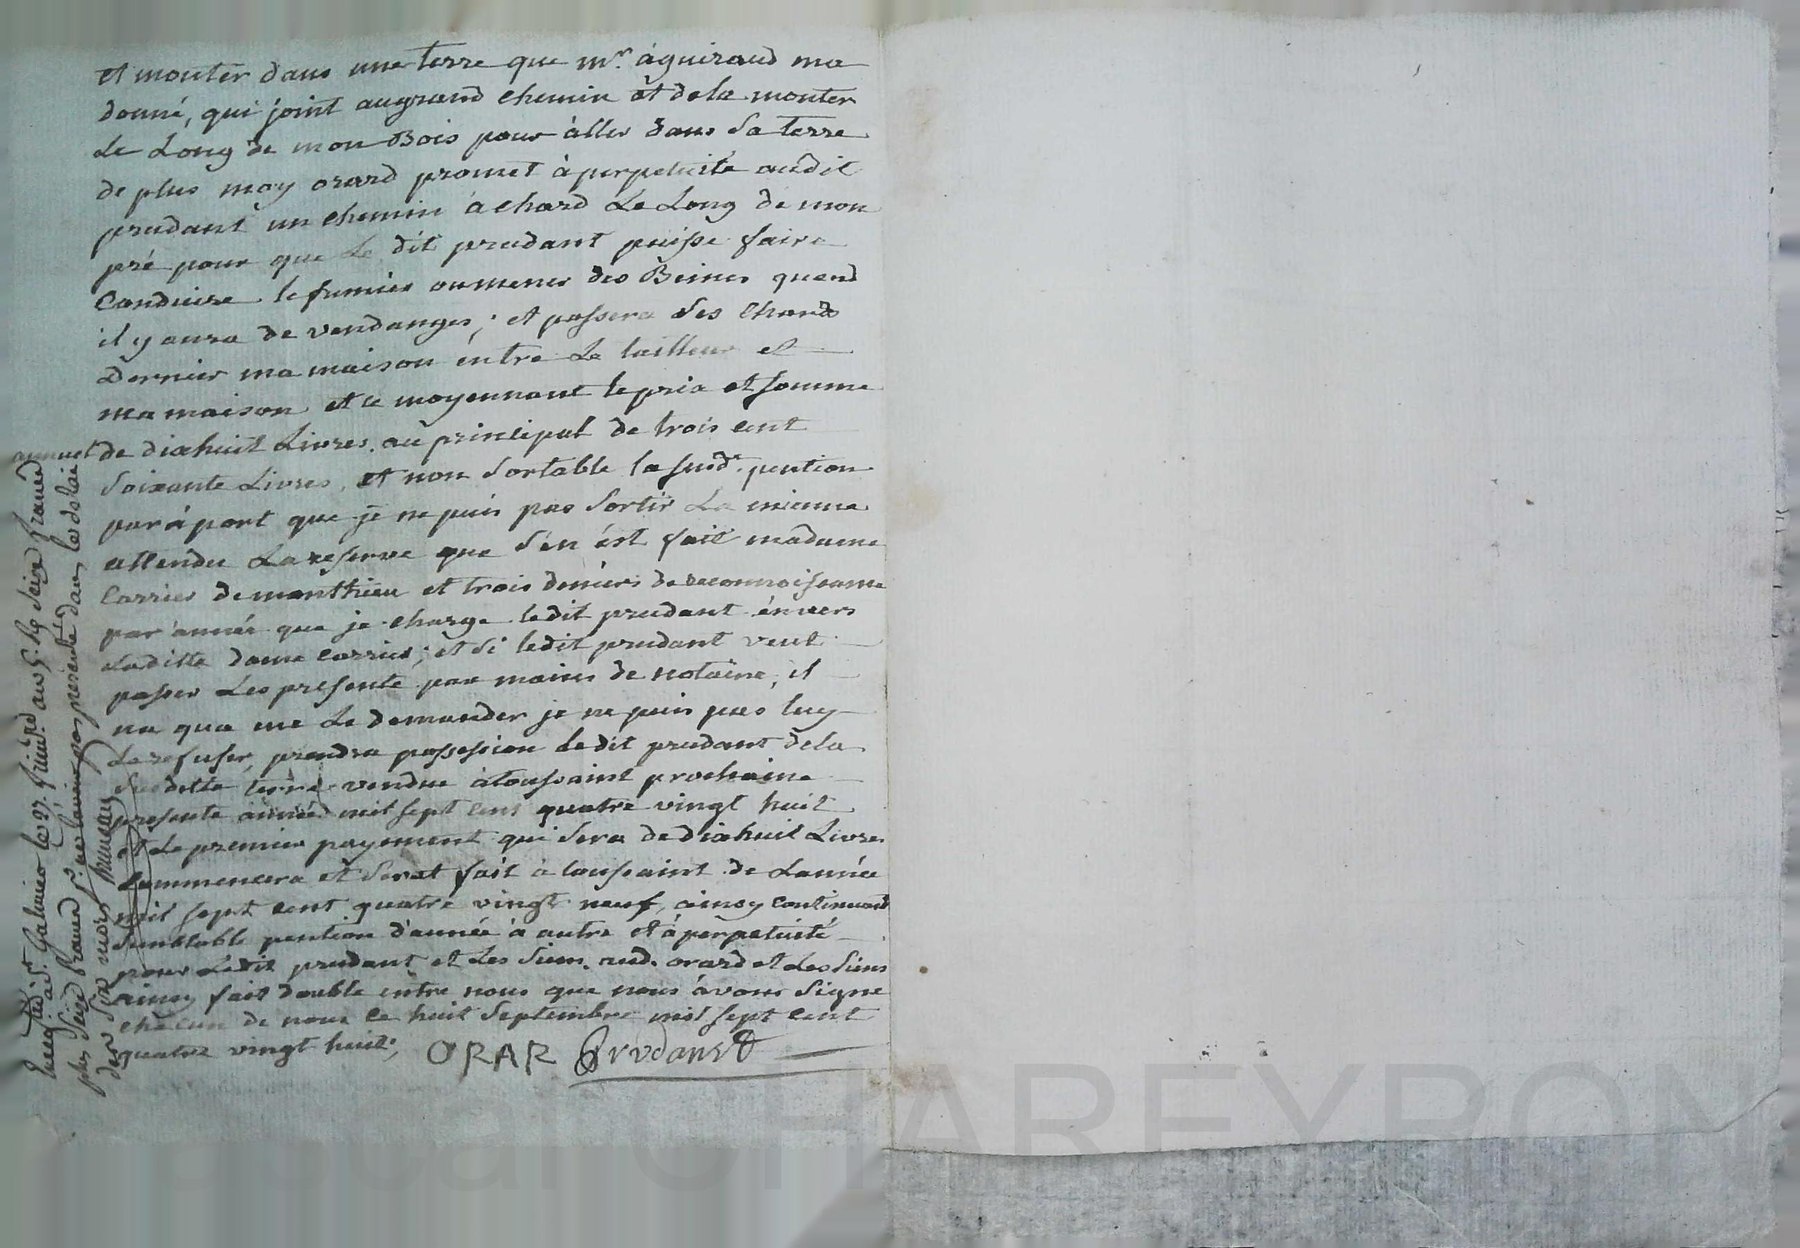 et monter dans une terre que mr. àguiraud ma
donné, qui joint augrand chemin et dela monter
Le Long de mon Bois pour àller dans Sa terre
de plus moy orard promet à perpetuité audit
prudant un chemin à chard Le Long de mon
pré pour que Le dit prudant puisse faire
Conduire le fumier oumener des Beines quand
il y aura de vendanges; et passera Ses Chards
Dernier ma maison entre Le tailleur et
ma maison et ce moyennant le prix et somme
annuel de dixhuit Livres au principal de trois cent
Soixante Livres, et non Sortable la susde. pention
par àport que je ne puis pas Sortir La mienne
attendu La reserve que S'en est fait madame
Carrier de monthieu et trois deniers de reconnoissance
par année que je charge ledit prudant envers
Laditte dame Carrier; et Si ledit prudant veut
passer Les presente par mains de notaire, il
na qua me Le demander je ne puis pas luy
Le refuser, prendra possession ledit prudant dela
Susditte terre vendue à toussaint prochaine
presente année mil sept cent quatre vingt huit
et Le premier payement qui Sera de dixhuit Livres
Commencera et Serat fait à toussaint de Lannée
mil sept cent quatre vingt neuf, ainsy Continuant
Semblable pention d'année à autre et à perpetuité
pour Ledit prudant et Les Siens aud. orard et Les Siens
ainsy fait double entre nous que nous àvons Signé
chacun de nous ce huit Septembre mil sept cent
quatre vingt huit,
ORAR Prudansd
à St. Galmier le 27 an 5. Rg Seize francs
plus Seize francs pr. pas presenté dans les delais
des Six mois
Pascal CHAREYRON